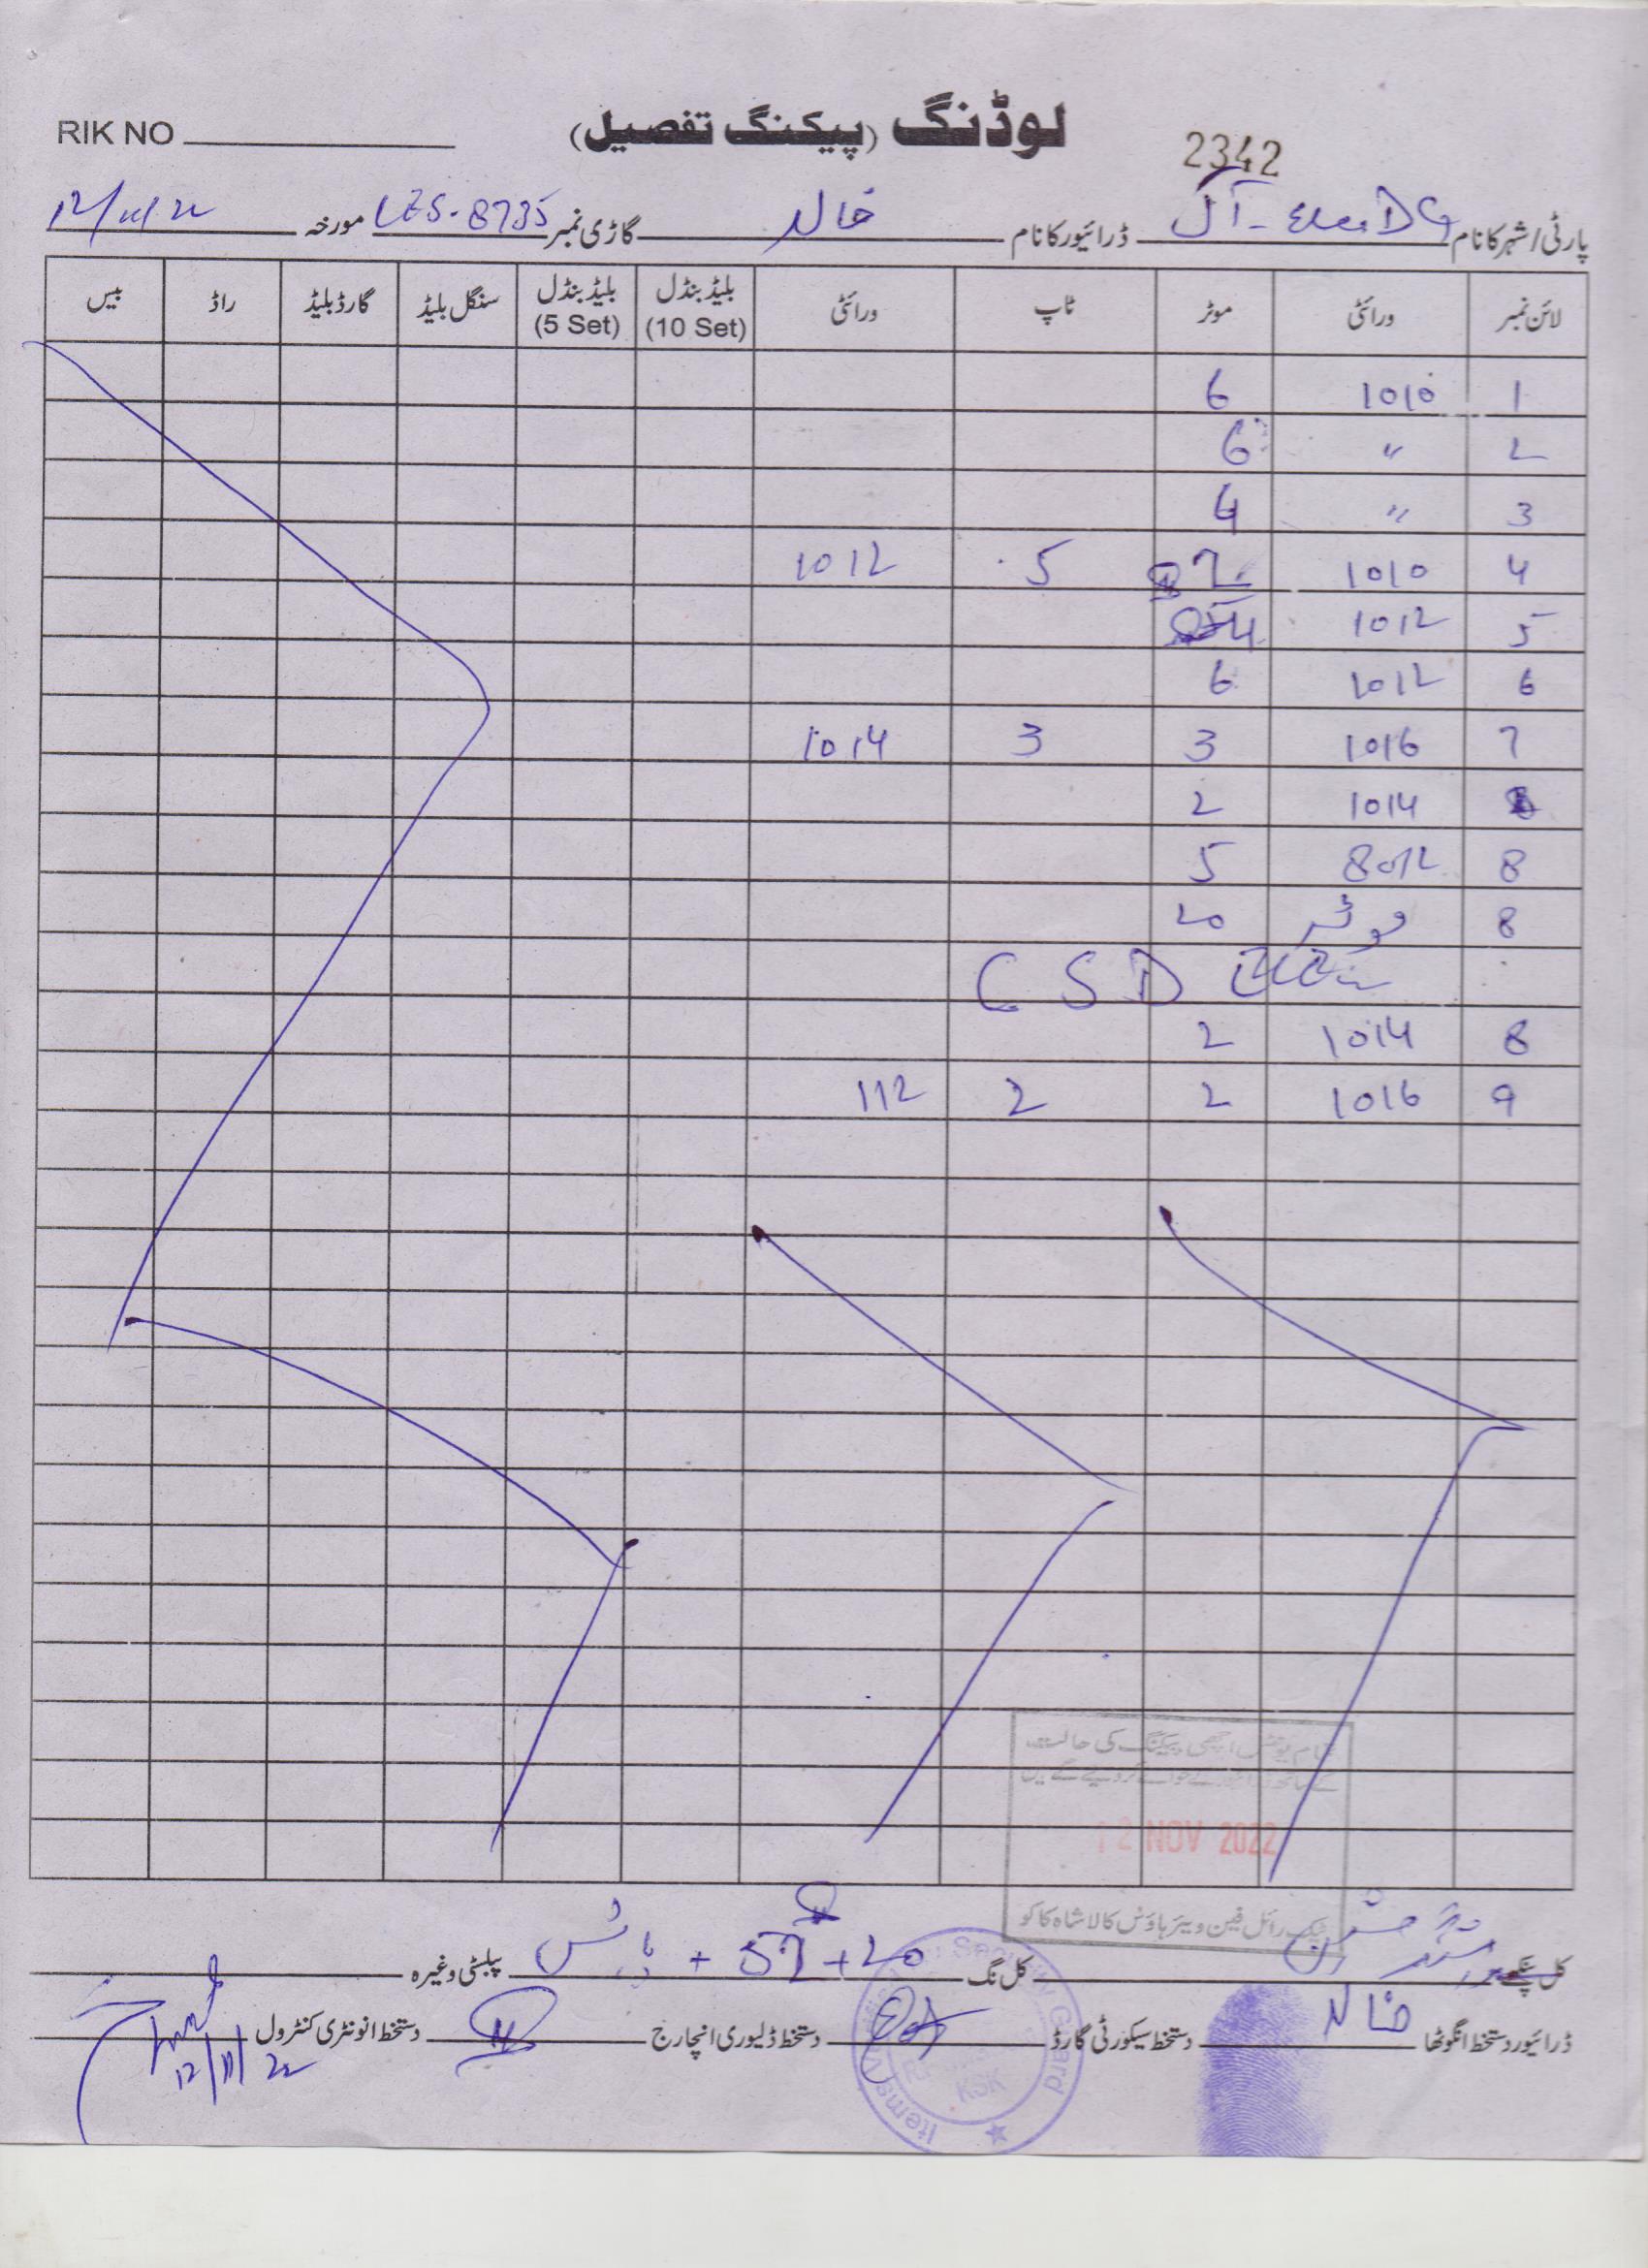 RIK NO
لوڈنگ (پیکنگ تفصیل)
2342
پارٹی/شہر کا نام DG
ڈرائیور کا نام خالد
گاڑی نمبر LES-8735 مورخہ 12/11/22
لائن نمبر ورائٹی موٹر ٹاپ ورائٹی بلیڈ بنڈل (10 Set) بلیڈ بنڈل (5 Set) سنگل بلیڈ گارڈ بلیڈ راڈ بیس
1 1010 6
2 " 6
3 " 4
4 1010 2 5 1012
5 1012 4
6 1012 6
7 1016 3 3 1014
1014 2
8 8012 5
8 20
CSD
8 1014 2
9 1016 2 2 112
تمام یونٹس اچھی پیکنگ کی حالت
12 NOV 2022
رائل فین ویئر ہاؤس کالا شاہ کاکو
کل پنکھے
کل نگ 52+20 +
پبلسٹی وغیرہ
ڈرائیور دستخط انگوٹھا خالد
دستخط سیکورٹی گارڈ
دستخط ڈلیوری انچارج
دستخط انونٹری کنٹرول
12/11/22
Security Guard
Items
KSK